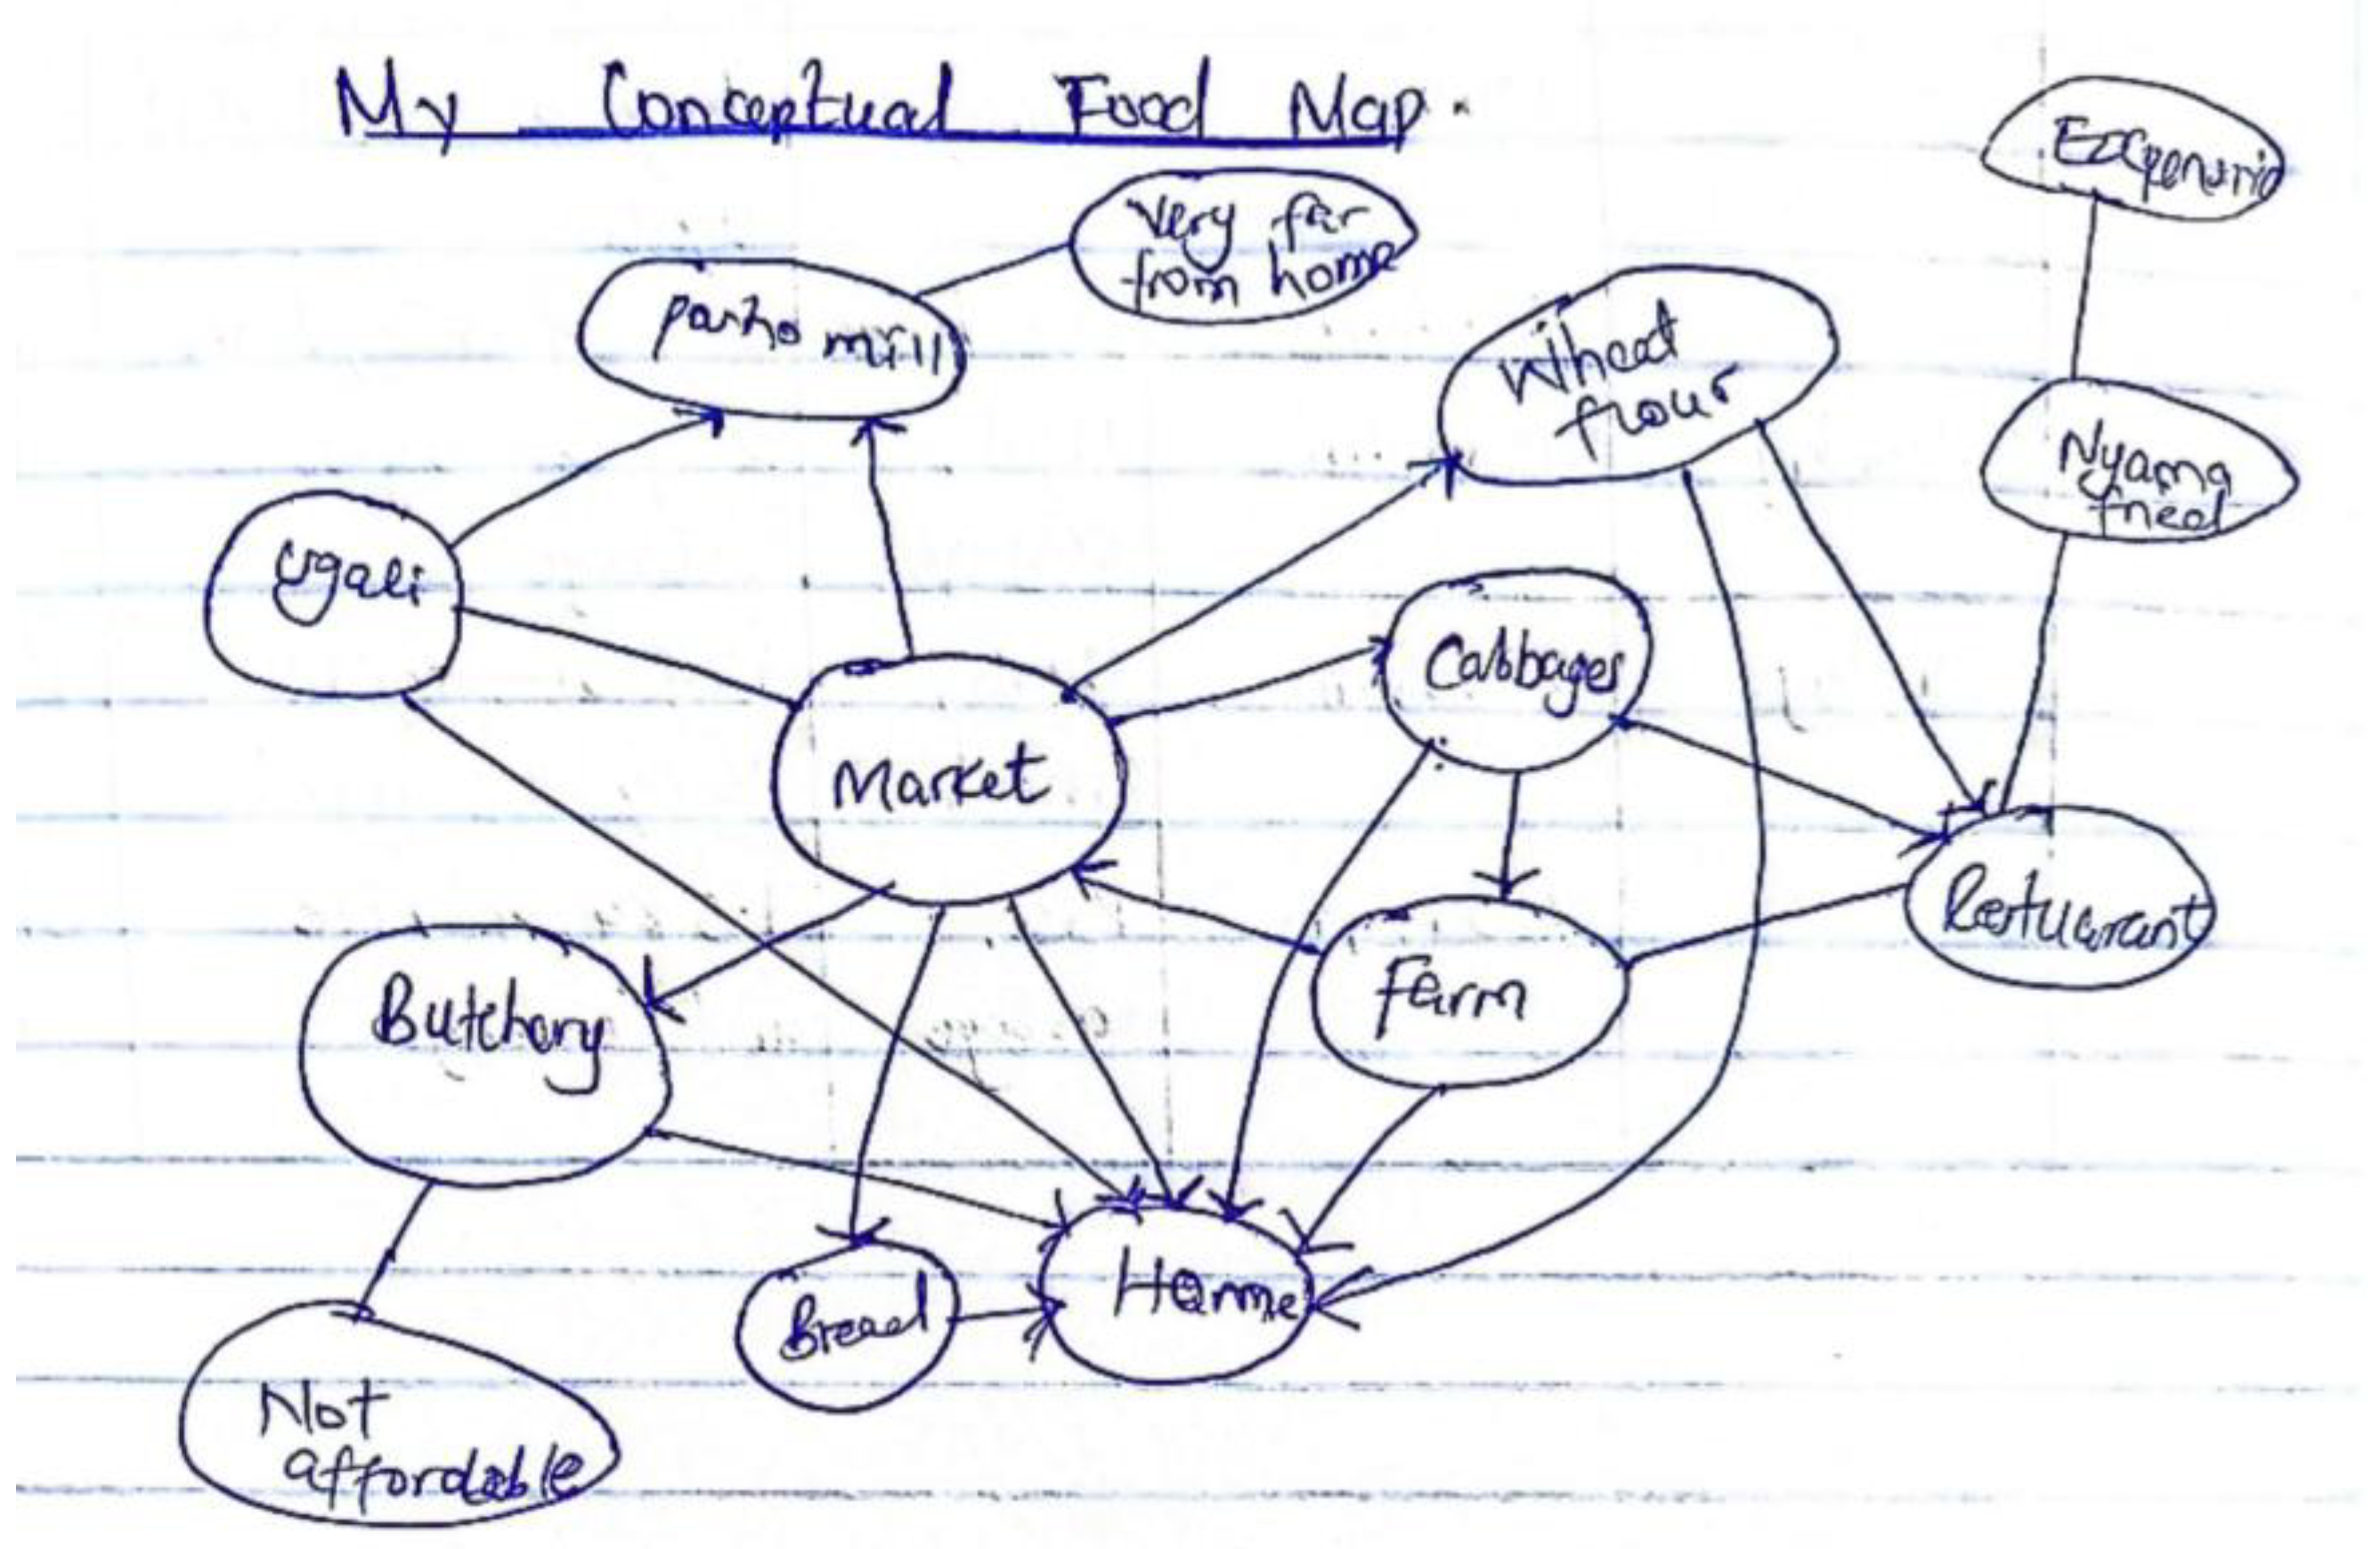 My Conceptual Food Map.
Expensive
Very far
from home
posho mill
Wheat
flour
Nyama
fried
Ugali
Cabbages
Market
Restuarant
Farm
Butchery
Home
Bread
Not
affordable